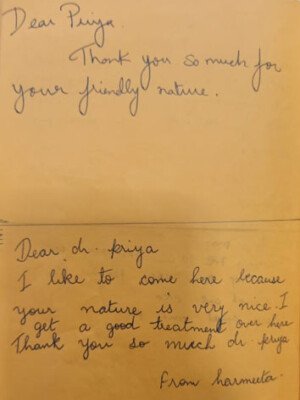 Dear Priya.
Thank you so much for
your friendly nature.
Dear dr. priya
I like to come here because
your nature is very nice. I
get a good treatment over here
Thank you so much dr. priya
From harmeeta.